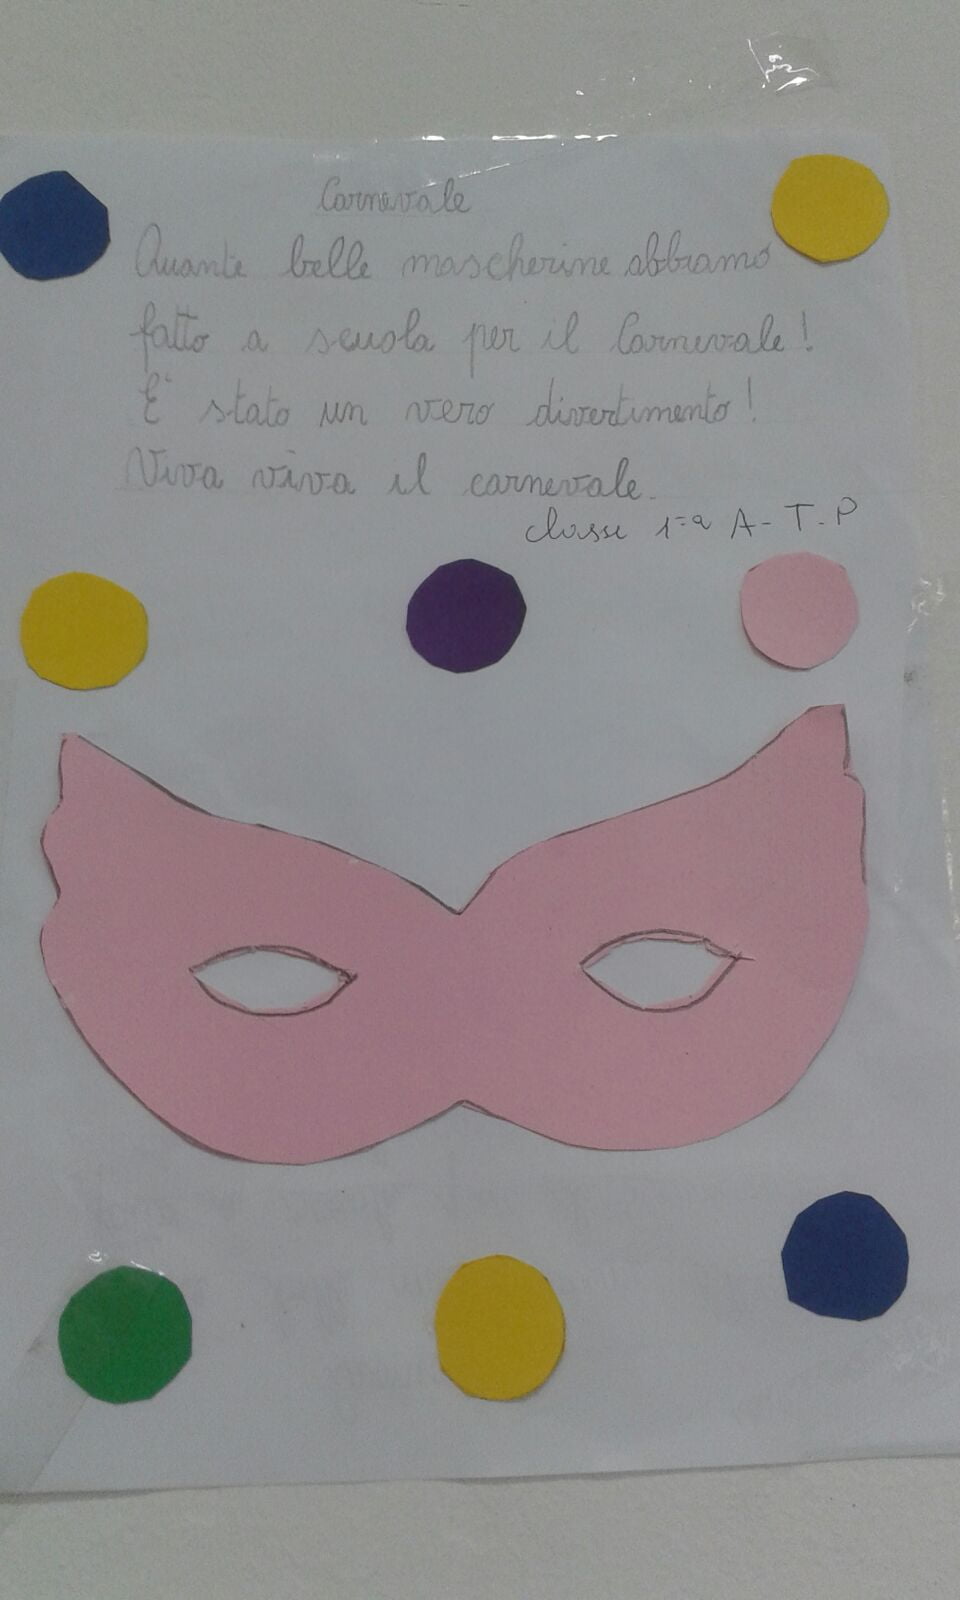 Carnevale
Quante belle mascherine abbiamo
fatto a scuola per il Carnevale!
E' stato un vero divertimento!
Viva viva il carnevale.
classe 1ª A-T-P